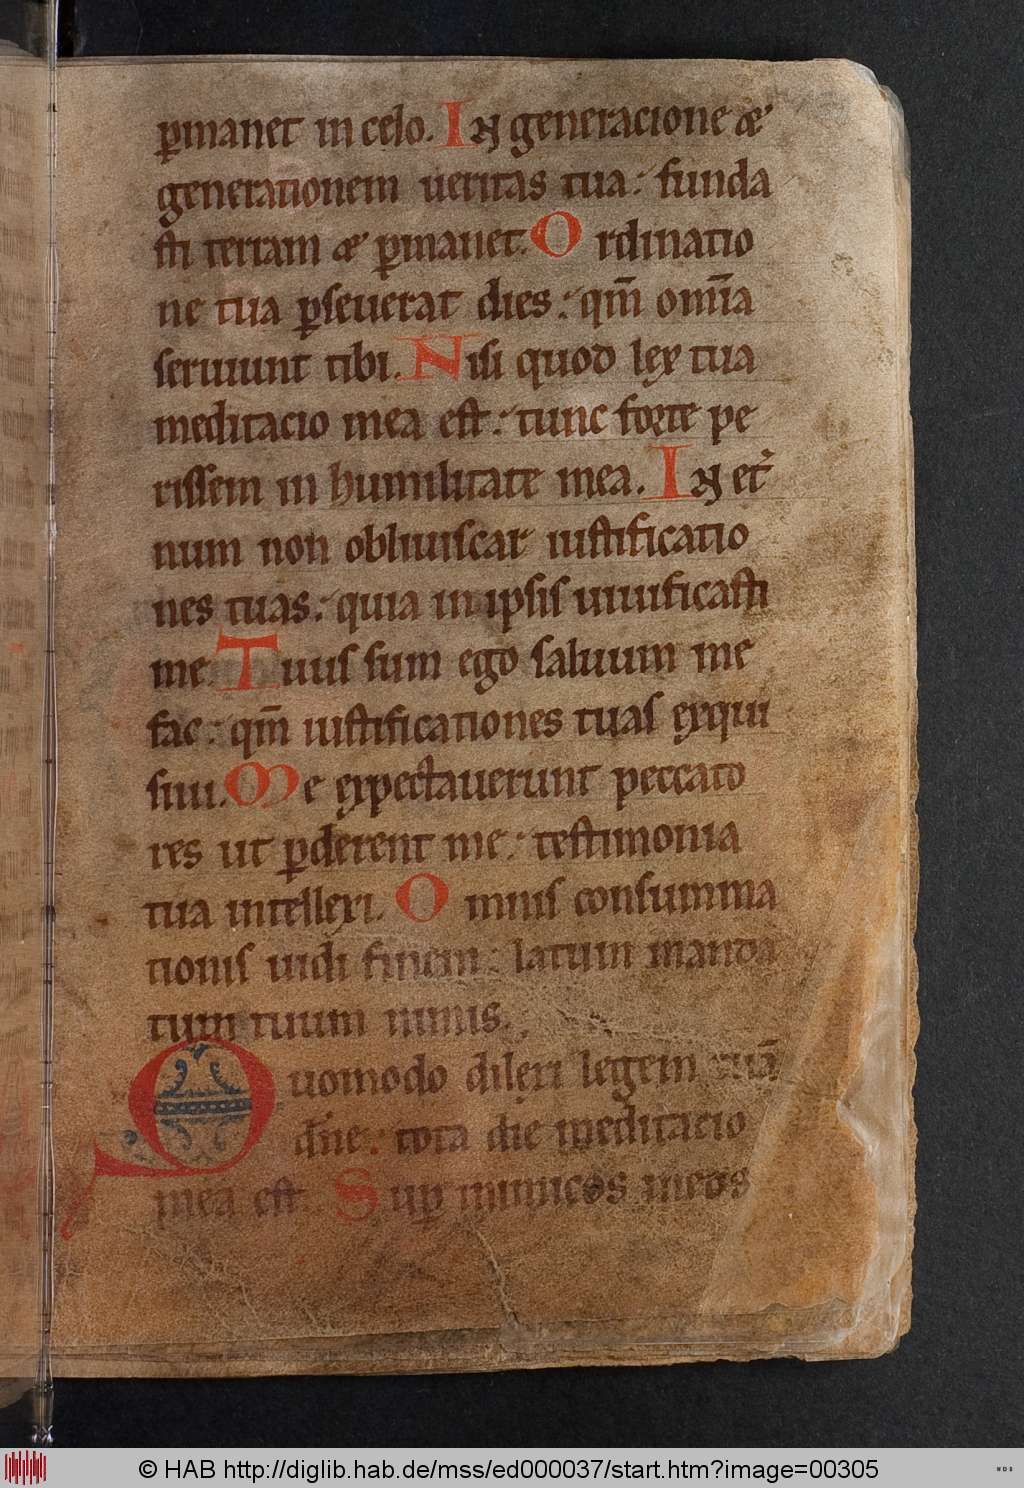 p̄manet in celo. In generacione &
generationem ueritas tua: funda
sti terram & p̄manet. Ordinatio
ne tua p̄seuerat dies: qm̄ om̄ia
seruiunt tibi. Nisi quod lex tua
meditacio mea est: tunc forte pe
rissem in humilitate mea. In et᷑
num non obliuiscar iustificatio
nes tuas: quia in ipsis uiuificasti
me. Tuus sum ego saluum me
fac: qm̄ iustificationes tuas exqui
siui. Me expectauerunt peccato
res ut p̄derent me: testimonia
tua intellexi. Omnis consumma
tionis uidi finem: latum manda
tum tuum nimis.
Quomodo dilexi legem tuā
dn̄e: tota die meditacio
mea est. Sup̄ inimicos meos
© HAB http://diglib.hab.de/mss/ed000037/start.htm?image=00305